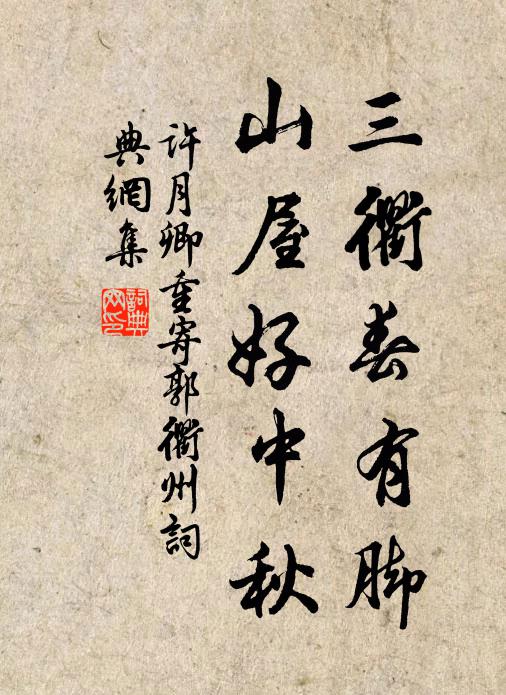 三衢春有脚
山屋好中秋
许月卿重寄郭衢州詞
典網集
詞典
网印